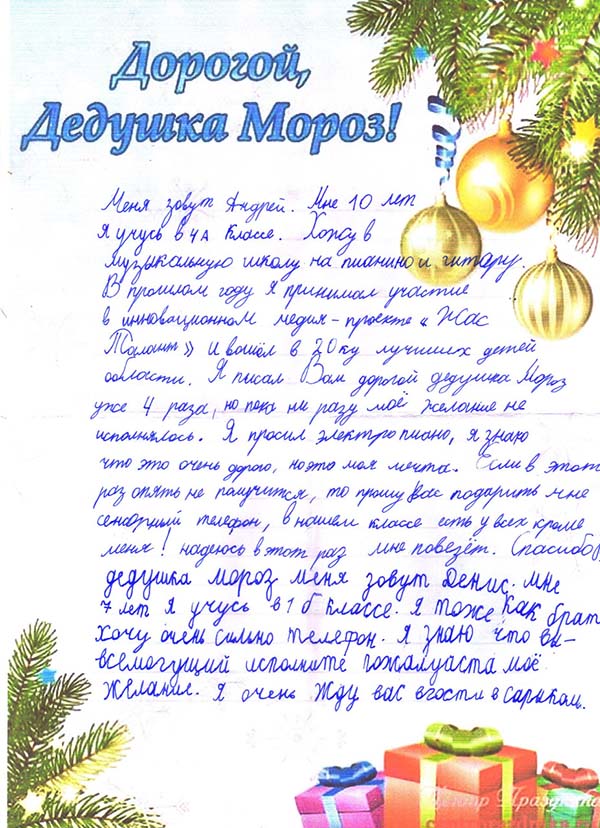 Дорогой,
Дедушка Мороз!
Меня зовут Андрей. Мне 10 лет
я учусь в 4А классе. Хожу в
музыкальную школу на пианино и гитару.
В прошлом году я принимал участие
в инновационном медиа-проекте "Жас
Талант" и вошёл в 20ку лучших детей
области. Я писал Вам дорогой дедушка Мороз
уже 4 раза, но пока ни разу моё желание не
исполнялось. Я просил электропиано, я знаю
что это очень дорого, но это моя мечта. Если в этот
раз опять не получится, то прошу Вас подарить мне
сенсорный телефон, в нашем классе есть у всех кроме
меня! надеюсь в этот раз мне повезёт.
дедушка мороз меня зовут Денис. мне
7 лет Я учусь в 1 б классе. Я тоже как брат
хочу очень сильно телефон. Я знаю что вы-
всемогущий исполните пожалуаста моё
желание. Я очень жду вас вгости в Сарыком.
Центр Праздник